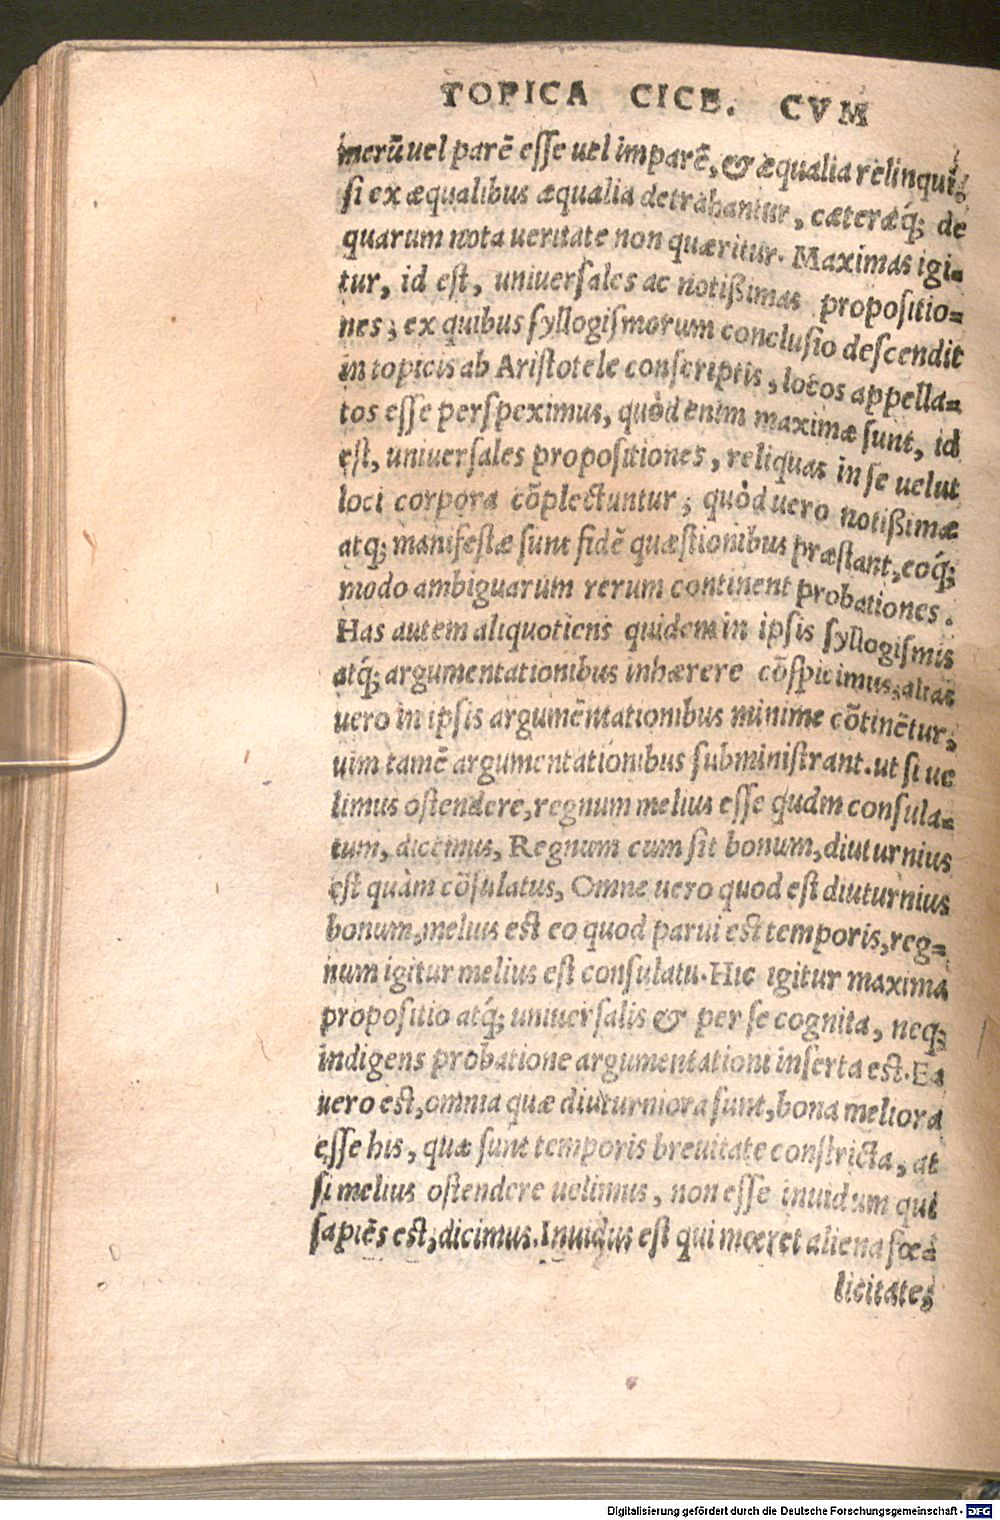 TOPICA CICE. CVM
merū uel parē esse uel imparē, & æqualia relinqui,
si ex æqualibus æqualia detrahantur, cæteráq́; de
quarum nota ueritate non quæritur. Maximas igi=
tur, id est, uniuersales ac notißimas propositio=
nes; ex quibus syllogismorum conclusio descendit
in topicis ab Aristotele conscriptis, locos appella=
tos esse perspeximus, quòd enim maximæ sunt, id
est, uniuersales propositiones, reliquas in se uelut
loci corpora cōplectuntur; quòd uero notißimæ
atq́; manifestæ sunt fidē quæstionibus præstant, eoq́;
modo ambiguarum rerum continent probationes.
Has autem aliquotiens quidem in ipsis syllogismis
atq́; argumentationibus inhærere cōspicimus, alias
uero in ipsis argumētationibus minime cōtinētur,
uim tamē argumentationibus subministrant. ut si ue
limus ostendere, regnum melius esse quàm consula=
tum, dicemus, Regnum cum sit bonum, diuturnius
est quàm cōsulatus, Omne uero quod est diuturnius
bonum, melius est eo quod parui est temporis, reg=
num igitur melius est consulatu. Hic igitur maxima
propositio atq́; uniuersalis & per se cognita, neq́;
indigens probatione argumentationi inserta est. Ea
uero est, omnia quæ diuturniora sunt, bona meliora
esse his, quæ sunt temporis breuitate constricta, at
si melius ostendere uelimus, non esse inuidum qui
sapiēs est, dicimus. Inuidus est qui mœret aliena fœ=
licitate,
Digitalisierung gefördert durch die Deutsche Forschungsgemeinschaft - DFG